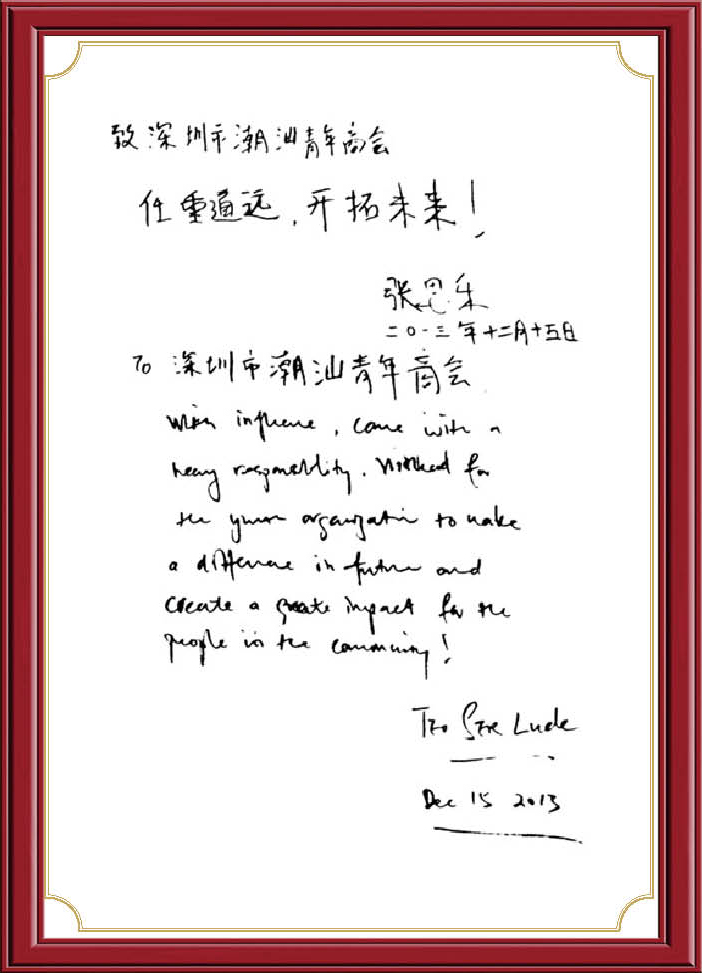 致深圳市潮汕青年商会
任重道远，开拓未来！
张思乐
二〇一三年十二月十五日
To 深圳市潮汕青年商会
With influence, come with a
heavy responsibility. Wished for
the organization to make
a difference in future and
create a greate impact for the
people in the community!
Teo Ser Luck
Dec 15 2013